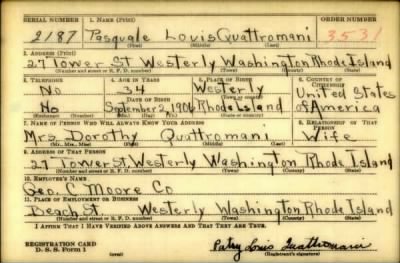 SERIAL NUMBER 1. NAME (Print) ORDER NUMBER
2187 Pasquale Louis Quattromani 3531
(First) (Middle) (Last)
2. ADDRESS (Print)
27 Tower St Westerly Washington Rhode Island
(Number and street or R. F. D. number) (Town) (County) (State)
3. TELEPHONE 4. AGE IN YEARS 5. PLACE OF BIRTH 6. COUNTRY OF CITIZENSHIP
No 34 Westerly United States
DATE OF BIRTH
No September 2, 1906 Rhode Island of America
(Exchange) (Number) (Mo.) (Day) (Yr.) (State or country)
7. NAME OF PERSON WHO WILL ALWAYS KNOW YOUR ADDRESS 8. RELATIONSHIP OF THAT PERSON
Mrs. Dorothy Quattromani Wife
(Mr., Mrs., Miss) (First) (Middle) (Last)
9. ADDRESS OF THAT PERSON
27 Tower St. Westerly Washington Rhode Island
(Number and street or R. F. D. number) (Town) (County) (State)
10. EMPLOYER'S NAME
Geo. C Moore Co
11. PLACE OF EMPLOYMENT OR BUSINESS
Beach St Westerly Washington Rhode Island
(Number and street or R. F. D. number) (Town) (County) (State)
I AFFIRM THAT I HAVE VERIFIED ABOVE ANSWERS AND THAT THEY ARE TRUE.
REGISTRATION CARD
D. S. S. Form 1
Louis Quattromani
(Registrant's signature)